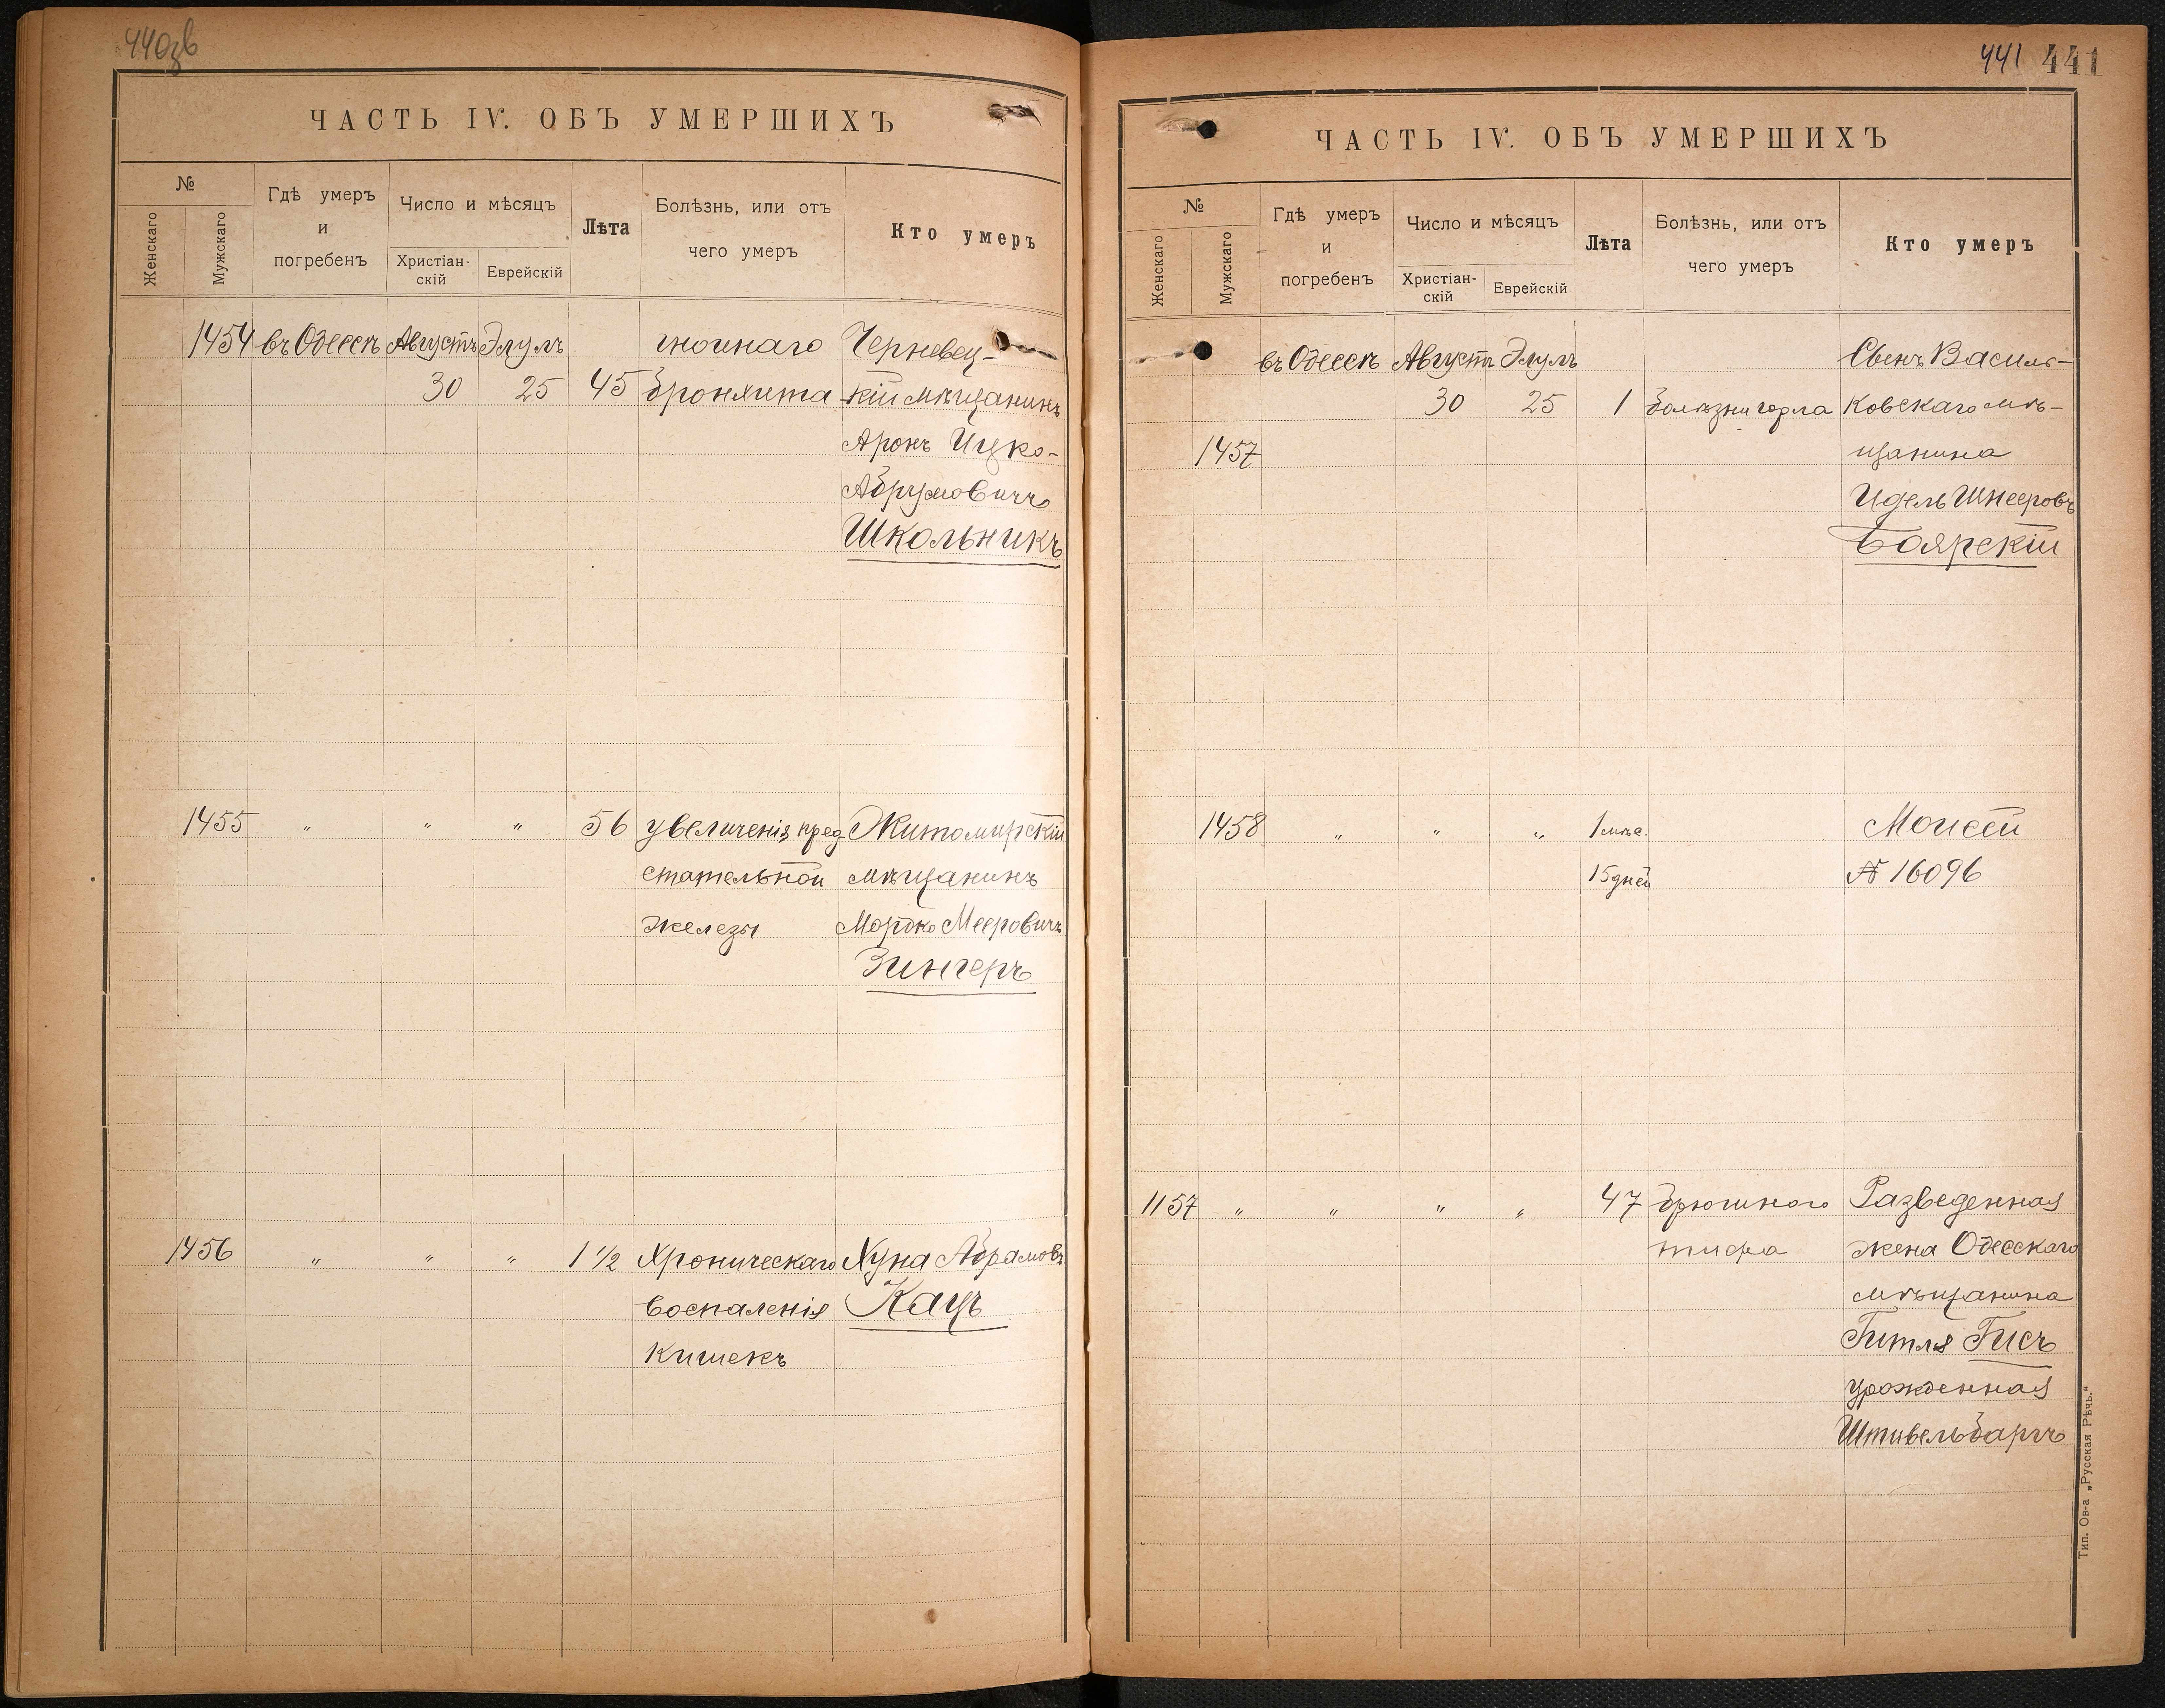 440зв
ЧАСТЬ IV. ОБЪ УМЕРШИХЪ
№
Женскаго
Мужскаго
Гдѣ умеръ
и
погребенъ
Число и мѣсяцъ
Христіан-
скій
Еврейскій
Лѣта
Болѣзнь, или отъ
чего умеръ
Кто умеръ
1454 въ Одессѣ Августъ Элулъ гнойнаго Черневец-
30 25 45 бронхита кій мѣщанинъ
Аронъ Ицко-
Абрумовичъ
Школьникъ
1455 " " " 56 увеличенія пред Житомирскій
стательной мѣщанинъ
железы Мордко Мееровичъ
Зингеръ
1456 " " " 1 1/2 Хроническаго Хуна Абрамовъ
воспаленія Кацъ
кишекъ
441 441
ЧАСТЬ IV. ОБЪ УМЕРШИХЪ
№
Женскаго
Мужскаго
Гдѣ умеръ
и
погребенъ
Число и мѣсяцъ
Христіан-
скій
Еврейскій
Лѣта
Болѣзнь, или отъ
чего умеръ
Кто умеръ
въ Одессѣ Августъ Элулъ Сынъ Василь-
30 25 1 болѣзни горла ковскаго мѣ-
1457 щанина
Идель Шнееровъ
Боярскій
1458 " " " 1 мѣс. Моисей
15 дней № 16096
1157 " " " " 47 брюшного Разведенная
тифа жена Одесскаго
мѣщанина
Гитля Гисъ
урожденная
Штивельбаргъ
Тип. Ов-а „Русская Рѣчь."